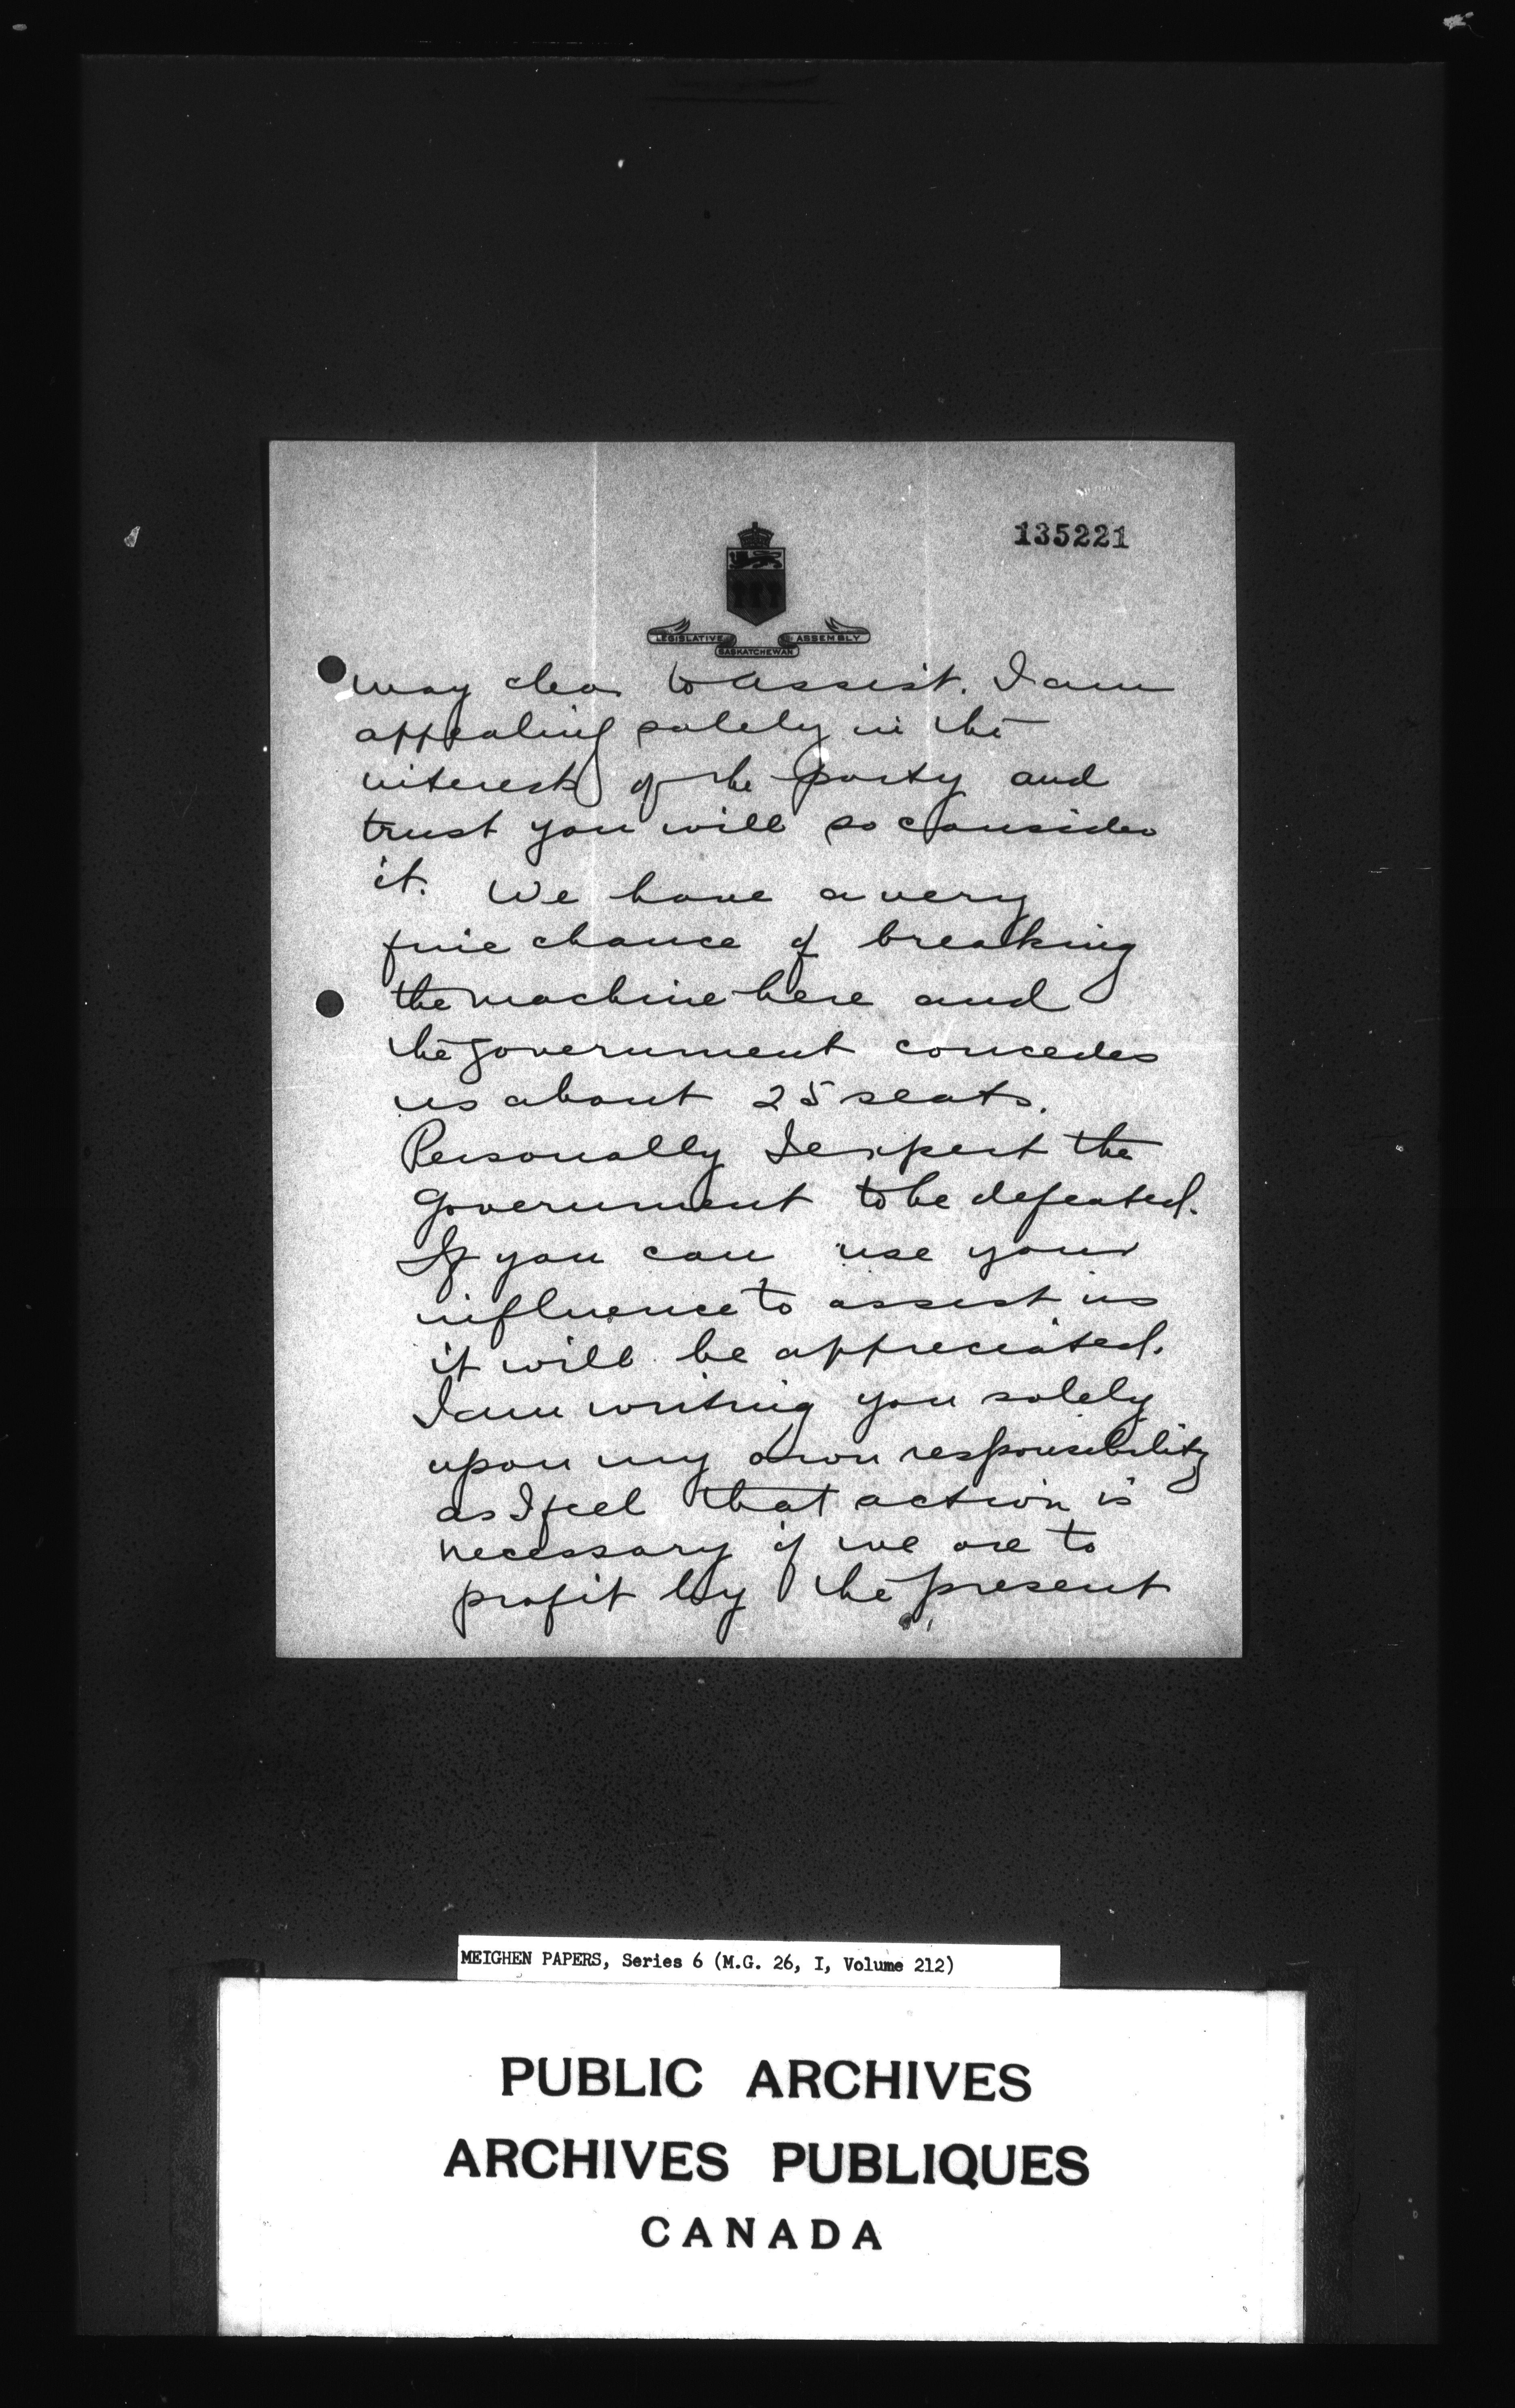 135221
LEGISLATIVE ASSEMBLY
SASKATCHEWAN
way clear to assist. I am
appealing solely in the
interests of the party and
trust you will so consider
it. We have a very
fine chance of breaking
the machine here and
the government concedes
us about 25 seats.
Personally I expect the
government to be defeated.
If you can use your
influence to assist us
it will be appreciated.
I am writing you solely
upon my own responsibility
as I feel that action is
necessary if we are to
profit by the present
MEIGHEN PAPERS, Series 6 (M.G. 26, I, Volume 212)
PUBLIC ARCHIVES
ARCHIVES PUBLIQUES
CANADA